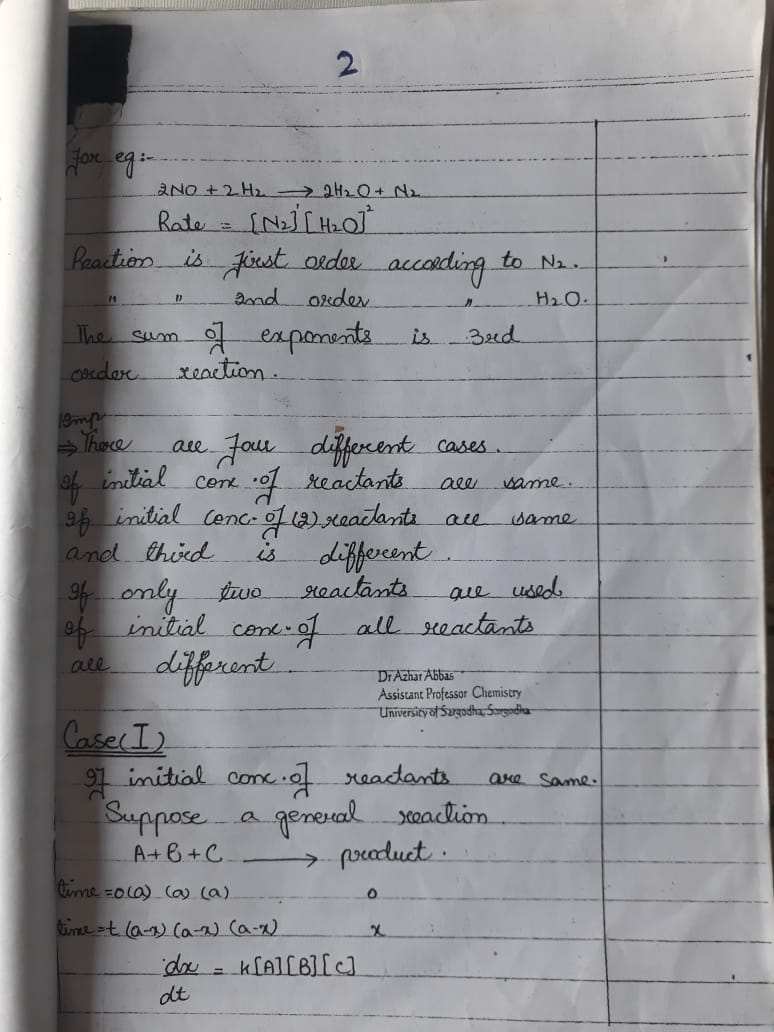 2
For eg:-
2NO + 2H2 → 2H2O + N2
Rate = [N2]¹ [H2O]²
Reaction is first order according to N2.
" " 2nd order " H2O.
The sum of exponents is 3rd
order reaction.
Imp
⇒ There are four different cases.
If initial conc. of reactants are same.
If initial conc. of (2) reactants are same
and third is different.
If only two reactants are used.
If initial conc. of all reactants
are different.
Dr Azhar Abbas
Assistant Professor Chemistry
University of Sargodha, Sargodha
Case(I)
If initial conc. of reactants are same.
Suppose a general reaction.
A+B+C → product.
time=0 (a) (a) (a) 0
time=t (a-x) (a-x) (a-x) x
dx = k[A][B][C]
dt